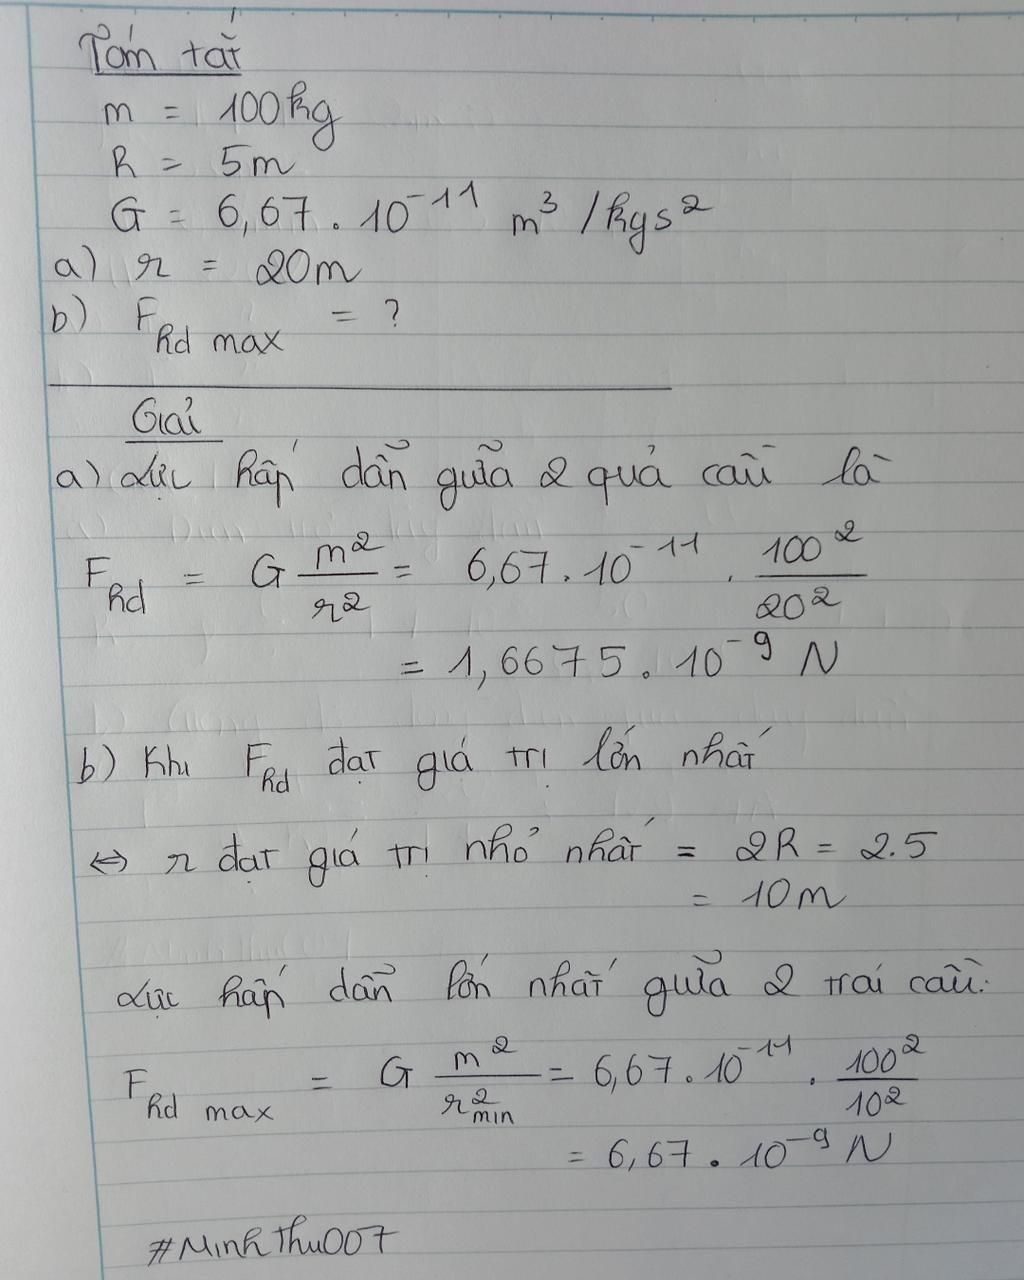 Tóm tắt
m = 100kg
R = 5m
G = 6,67 . 10⁻¹¹ m³ /kgs²
a) r = 20m
b) F_hd max = ?
Giải
a) Lực hấp dẫn giữa 2 quả cầu là
F_hd = G m²/r² = 6,67 . 10⁻¹¹ . 100²/20²
= 1,6675 . 10⁻⁹ N
b) Khi F_hd đạt giá trị lớn nhất
⇔ r đạt giá trị nhỏ nhất = 2R = 2.5
= 10m
Lực hấp dẫn lớn nhất giữa 2 trái cầu:
F_hd max = G m²/r²_min = 6,67 . 10⁻¹¹ . 100²/10²
= 6,67 . 10⁻⁹ N
#MinhThu007